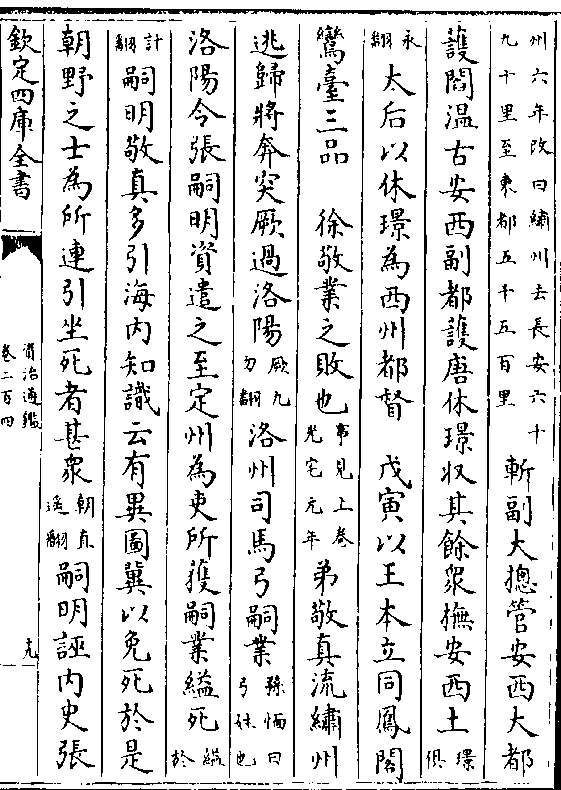 州六年改曰繡州去長安六十
九十里至東都五千五百里
斬副大摠管安西大都
護閻温古安西副都護唐休璟収其餘衆撫安西土璟俱
永翻太后以休璟為西州都督 戊寅以王本立同鳳閣
鸞臺三品 徐敬業之敗也事見上卷光宅元年弟敬真流繡州
逃歸將奔突厥過洛陽厥九勿翻洛州司馬弓嗣業孫愐曰弓姓也
洛陽令張嗣明資遣之至定州為吏所獲嗣業縊死縊於
計翻嗣明敬真多引海内知識云有異圖冀以免死於是
朝野之士為所連引坐死者甚衆朝直遥翻嗣明誣内史張
欽定四庫全書
資治通鑑
卷二百四
九